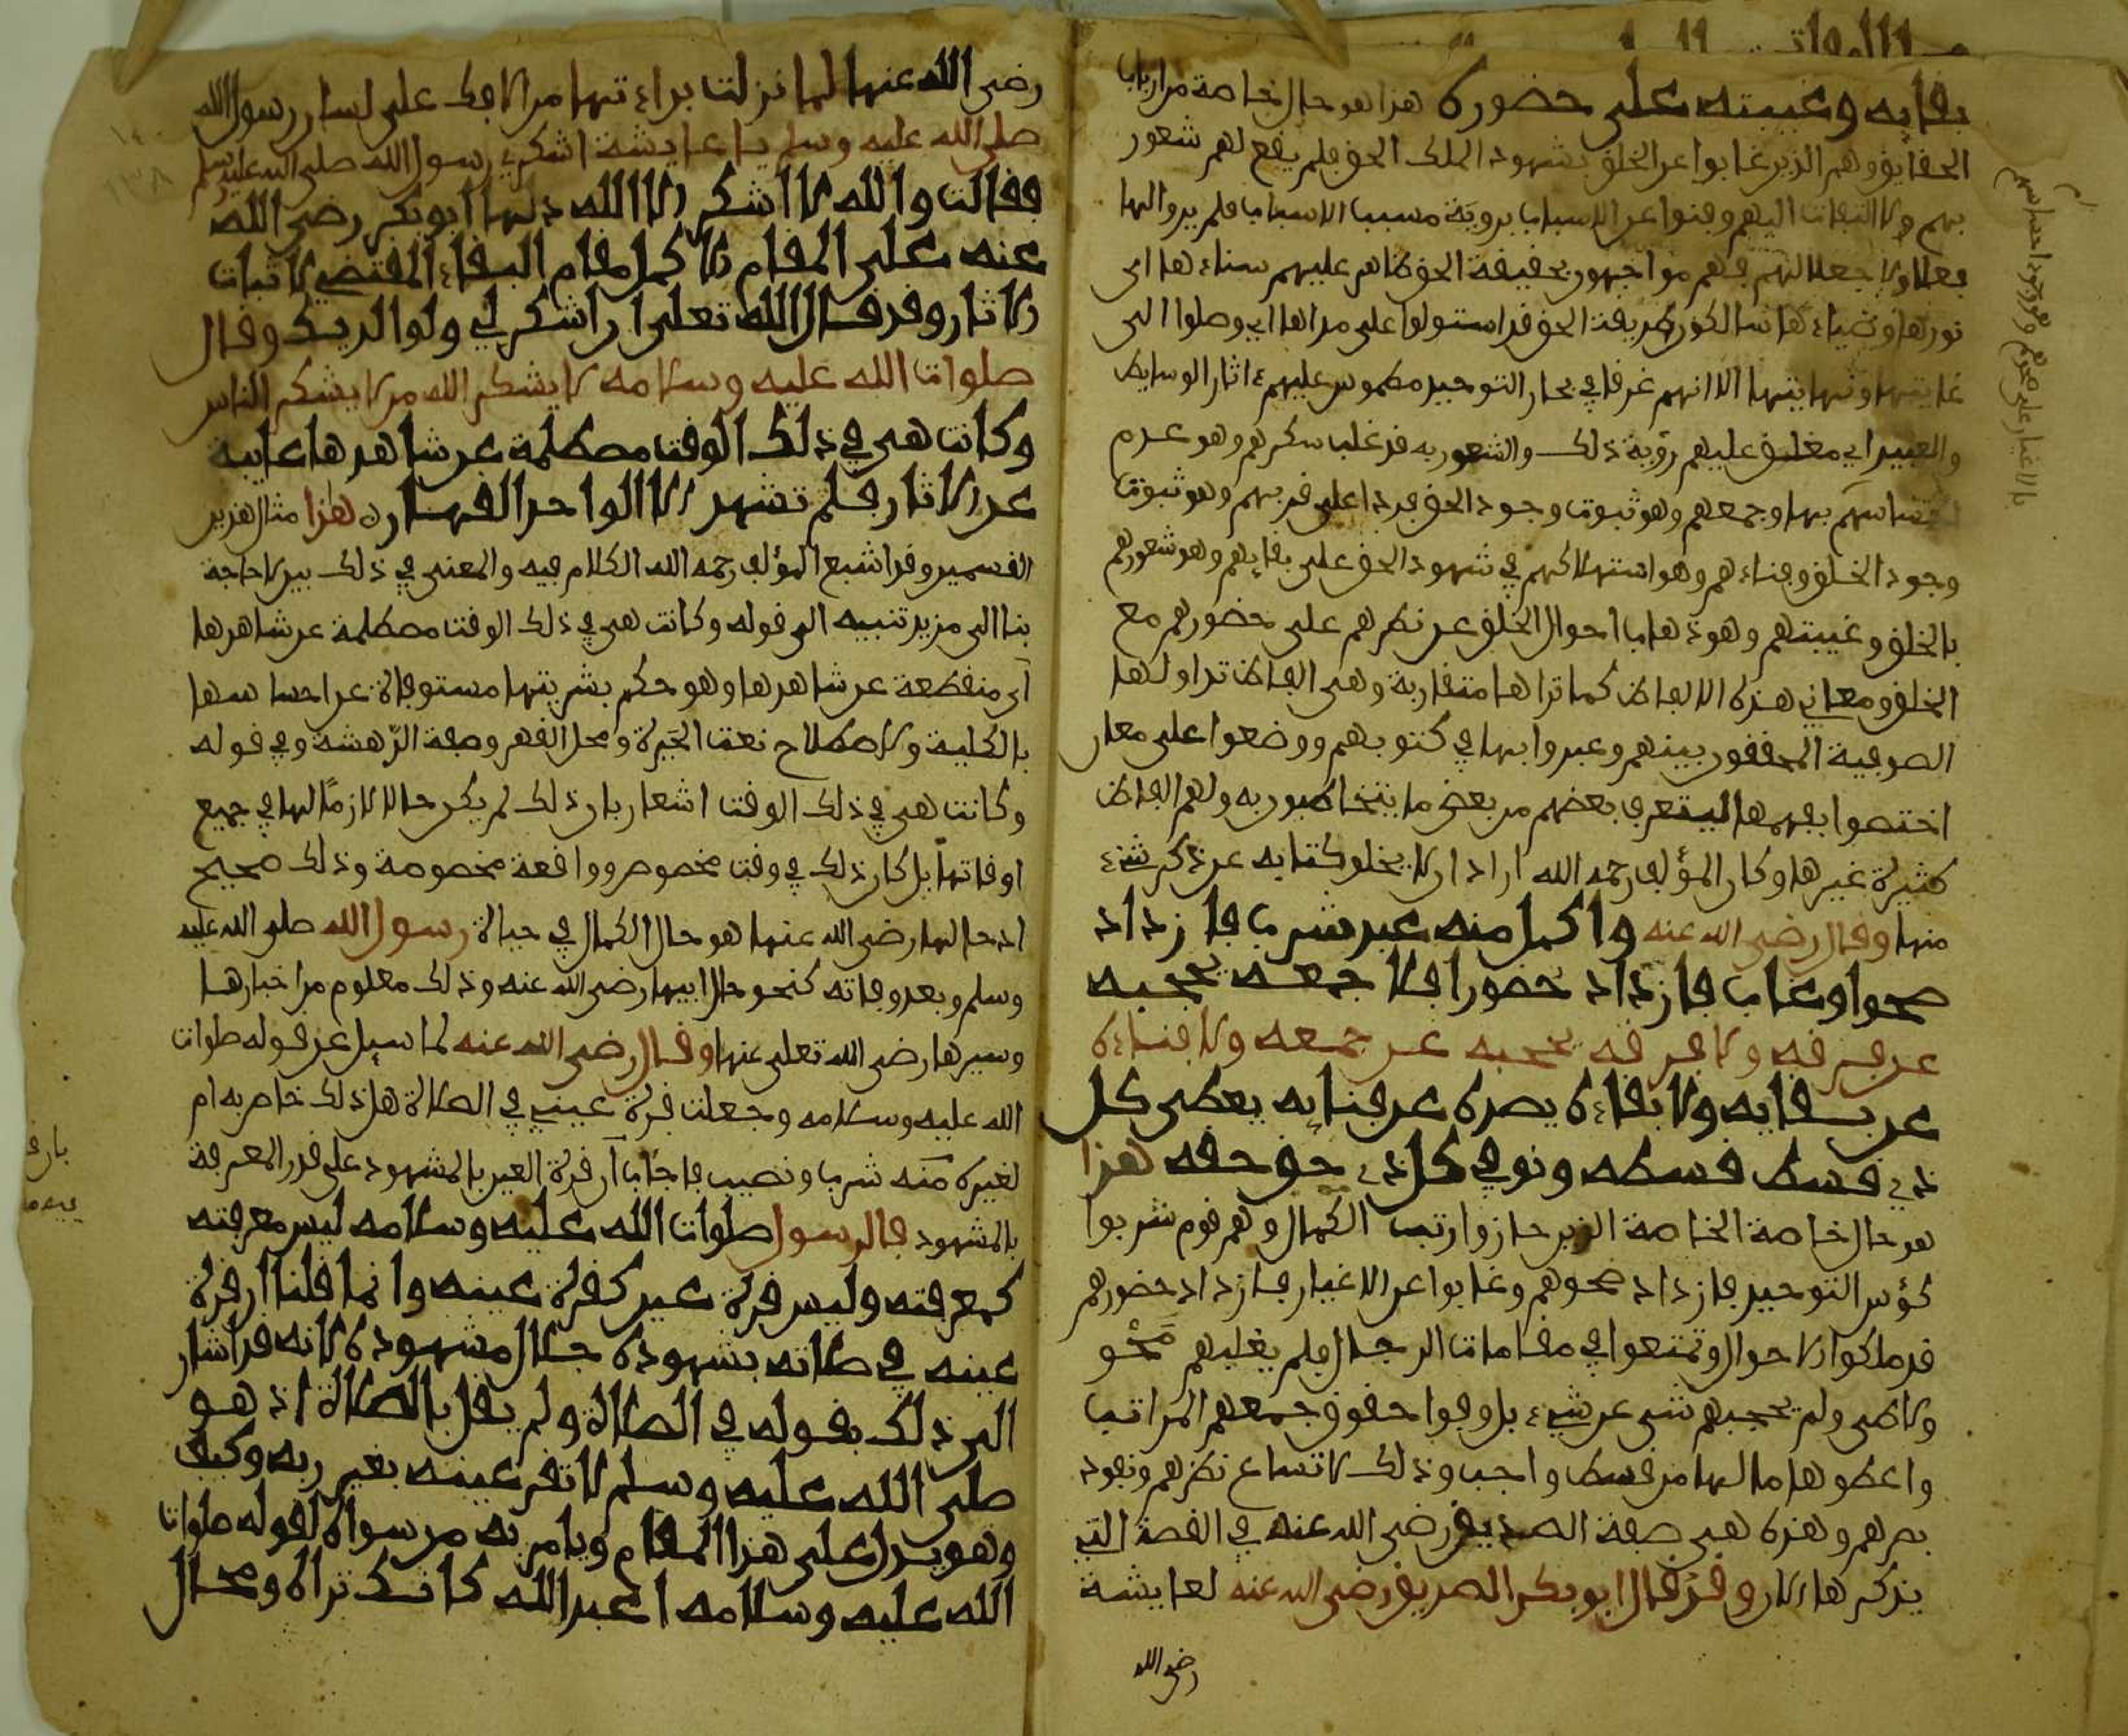 بقايه وغيبته على حضوره هذا هو حال الخاصة من ارباب
الحقايق وهم الذين غابوا عن الخلق بشهود الملك الحق فلم يقع لهم شعور
بهم ولا التفات اليهم وفنوا عن الاسباب بروية مسبب الاسباب فلم يروا لها
فعلا ولا جعلا لهم فهم مواجهون بحقيقة الحق ظاهر عليهم سناءها اى
نورها وضياءها سالكون طريقة الحق قد استولوا على مداها اي وصلوا الى
غايتها ونهايتها الا انهم غرقا في بحار التوحيد مطموس عليهم ءاثار الوسايط
والعبيد اي مغلق عليهم رؤية ذلك والشعور به قد غلب سكرهم وهو عدم
احساسهم بها وجمعهم وهو ثبوت وجود الحق فردا على فرقهم وهو ثبوت
وجود الخلق وفناءهم وهو استهلاكهم في شهود الحق على بقايهم وهو شعورهم
بالخلق وغيبتهم وهو ذهاب احوال الخلق عن نظرهم على حضورهم مع
الخلق ومعاني هذه الالفاظ كما تراها متقاربة وهى الفاظ تداولها
الصوفية المحققون بينهم وعبروا بها في كتوبهم ووضعوا على معان
اختصوا بفهمها ليتعرف بعضهم من بعض ما يتخاطبون به ولهم الفاظ
كثيرة غيرها وكان المؤلف رحمه الله اراد ان لا يخلو كتابه عن ذكر شيء
منها وقال رضى الله عنه واكمل منه عبد شرب فازداد
صحوا وغاب فازداد حضورا فلا جمعه يحجبه
عن فرقه ولا فرقه يحجبه عن جمعه ولا فناءه
عن بقايه ولا بقاءه يصده عن فنايه يعطى كل
ذي قسط قسطه ونوفي كل ذي حق حقه هذا
هو حال خاصة الخاصة الذين حازوا رتب الكمال وهم قوم شربوا
كؤس التوحيد فازداد صحوهم وغابوا عن الاغيار فازداد حضورهم
قد ملكوا الاحوال وتمتعوا في مقامات الرجال فلم يغلبهم محو
ولا ولم يحجبهم شى عن شيء بل وفوا حقوق جمعهم المراتب
واعطوها ما لها من قسط واجب وذلك لاتساع نظرهم ونفوذ
بصرهم وهذه هى صفة الصديق رضى الله عنه في القصة التي
يذكرها الان وقد قال ابو بكر الصديق رضى الله عنه لعايشة
رضى الله
بالاغيار على صحوهم وهو وجود احساسهم
رضى الله عنها لما نزلت براءتها من الافك على لسان رسول الله
صلى الله عليه وسلم يا عايشة اشكري رسول الله صلى الله عليه وسلم
فقالت والله لا اشكر الا الله دلها ابو بكر رضى الله
عنه على المقام الاكمل مقام البقاء المقتضي لاثبات
الاثار وقد قال الله تعلى ان اشكر لي ولوالديك وقال
صلوات الله عليه وسلامه لا يشكر الله من لا يشكر الناس
وكانت هى في ذلك الوقت مصطلمة عن شاهدها غايبة
عن الاثار فلم تشهد الا الواحد القهار هذا مثال هذين
القسمين وقد اشبع المؤلف رحمه الله الكلام فيه والمعنى في ذلك بين لا حاجة
بنا الى مزيد تنبيه الى قوله وكانت هى في ذلك الوقت مصطلمة عن شاهدها
اى منقطعة عن شاهدها وهو حكم بشريتها مستوفاة عن احساسها
بالكلية والاصطلام نعت الحيرة ومحل القهر وصفة الدهشة وفي قوله
وكانت هى في ذلك الوقت اشعار بان ذلك لم يكن حالا لازما لها في جميع
اوقاتها بل كان ذلك في وقت مخصوص وواقعة مخصوصة وذلك صحيح
اذ حالها رضى الله عنها هو حال الكمال في حياة رسول الله صلى الله عليه
وسلم وبعد وفاته كنحو حال ابيها رضى الله عنه وذلك معلوم من اخبارها
وسيرها رضى الله تعلى عنها وقال رضى الله عنه لما سيل عن قوله صلوات
الله عليه وسلامه وجعلت قرة عيني في الصلاة هل ذلك خاص به ام
لغيره منه شرب ونصيب فاجاب ان قرة العين بالمشهود على قدر المعرفة
بالمشهود فالرسول صلوات الله عليه وسلامه ليس معرفته
كمعرفته وليس قرة عين كقرة عينه وانما قلنا ان قرة
عينه في صلاته بشهوده جلال مشهوده لانه قد اشار
الى ذلك بقوله في الصلاة ولم يقل بالصلاة اذ هو
صلى الله عليه وسلم لا تقر عينه بغير ربه وكيف
وهو يدل على هذا المقام ويامر به من سواه لقوله صلوات
الله عليه وسلامه اعبد الله كانك تراه ومحال